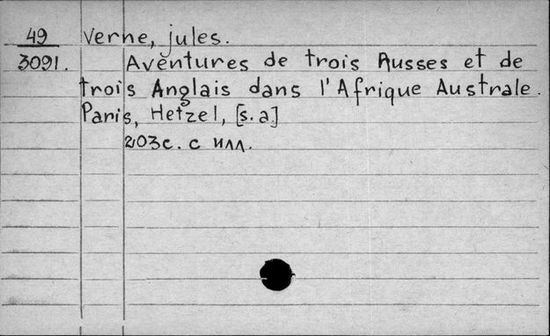 49 Verne, jules.
3091. Aventures de trois Russes et de
trois Anglais dans l'Afrique Australe.
Paris, Hetzel, [s.a]
203c. с илл.